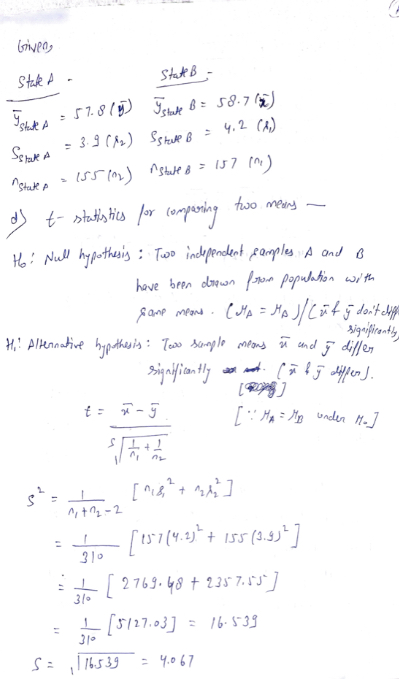 Given,
State A - State B -
ȳ State A = 57.8 (ȳ) ȳ State B = 58.7 (x̄)
S State A = 3.9 (s₂) S State B = 4.2 (s₁)
n State A = 155 (n₂) n State B = 157 (n₁)
d) t - statistics for comparing two means —
H₀: Null hypothesis : Two independent samples A and B
have been drawn from population with
same means. (μA = μB) / (x̄ & ȳ don't differ
significantly)
H₁: Alternative hypothesis: Two sample means x̄ and ȳ differ
significantly . (x̄ & ȳ differ).
t = x̄ - ȳ / S √(1/n₁ + 1/n₂) [∵ μA = μB under H₀]
S² = 1/(n₁+n₂-2) [n₁s₁² + n₂s₂²]
= 1/310 [157(4.2)² + 155(3.9)²]
= 1/310 [2769.48 + 2357.55]
= 1/310 [5127.03] = 16.539
S = √16.539 = 4.067